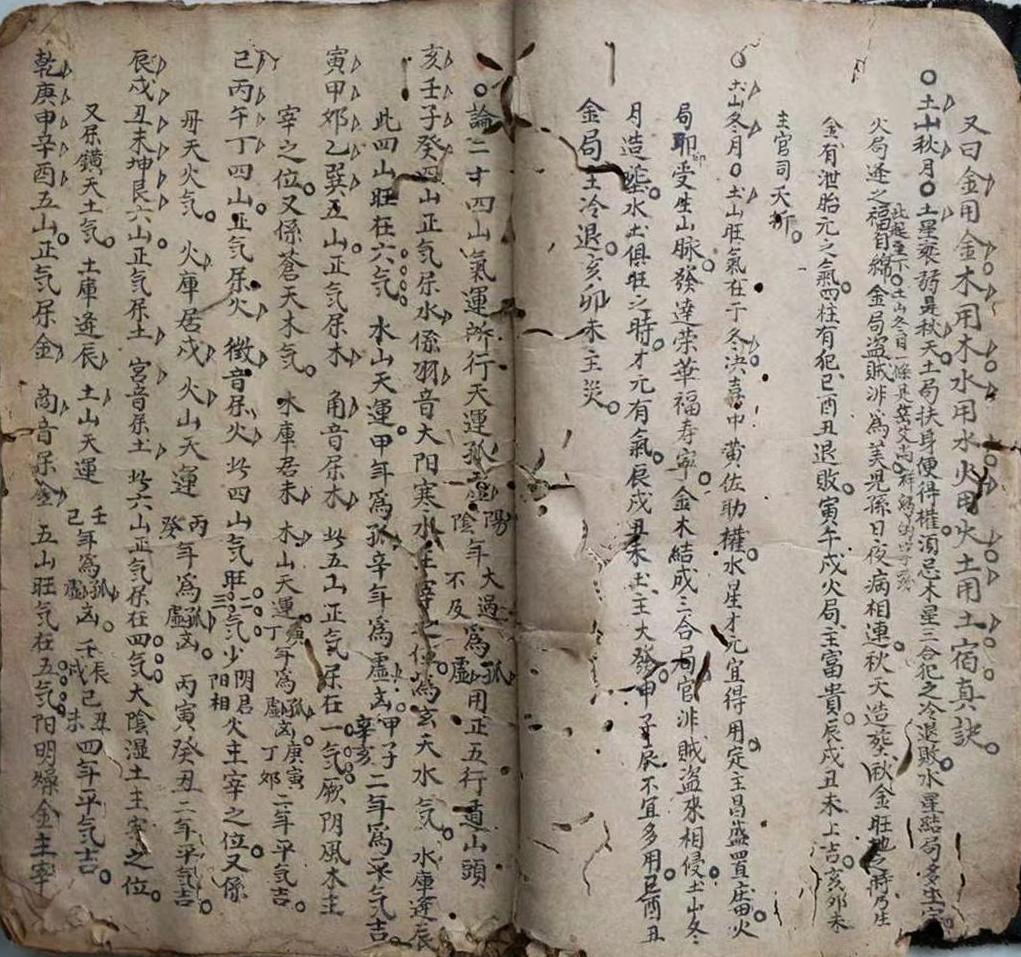 又曰金用金木用木水用水火用火土用土宿真訣
土山秋月土星衰弱是秋天土局扶身便得權須忌木星三合犯之冷退敗水星結局多生
火局逢之福自綿金局盜賊非為美見孫日夜病相連秋天造葬酥金旺地之時乃生
此起至下土山冬月一條是
金有泄胎元之氣四柱有犯巳酉丑退敗寅午戌火局主富貴辰戌丑未上吉亥卯未
主官司夭折
土山冬月土山旺氣在于冬決喜中黃佐助權水星才元宜得用定主昌盛置庄田火
局卯受生山脉發達榮華福寿寧金木結成三合局官非賊盜來相侵土山冬
月造塟水土俱旺之時才元有氣辰戌丑未土主大發申子辰不宜多用巳酉丑
金局主冷退亥卯未主災
論二十四山氣運所行天運孤虛陽年大過為孤用正五行遁山頭
陰年不及為虛
亥壬子癸四山正気属水係羽音大阳寒水主宰之位為玄天水気水庫逢辰
此四山旺在六気水山天運甲年為孤辛年為虛凶甲子辛亥二年為平气吉
寅甲卯乙巽五山正気属木角音属木此五山正気属在一気厥阴風木主
宰之位又係蒼天木気木庫居未木山天運庚年為孤丁年為虛凶庚寅丁卯二年平気吉
己丙午丁四山正気属火徵音属火此四山気旺二三気少阴君阳相火主宰之位又係
丹天火気火庫居戌火山天運丙癸年為孤虛凶丙寅癸丑二年平気吉
辰戌丑未坤艮六山正気属土宮音属土此六山正気属在四気大陰湿土主宰之位
又属鐄天土気土庫逢辰土山天運壬己年為孤虛凶壬辰戌己丑未四年平気吉
乾庚申辛酉五山正気属金商音属金五山旺気在五気阳明燥金主宰